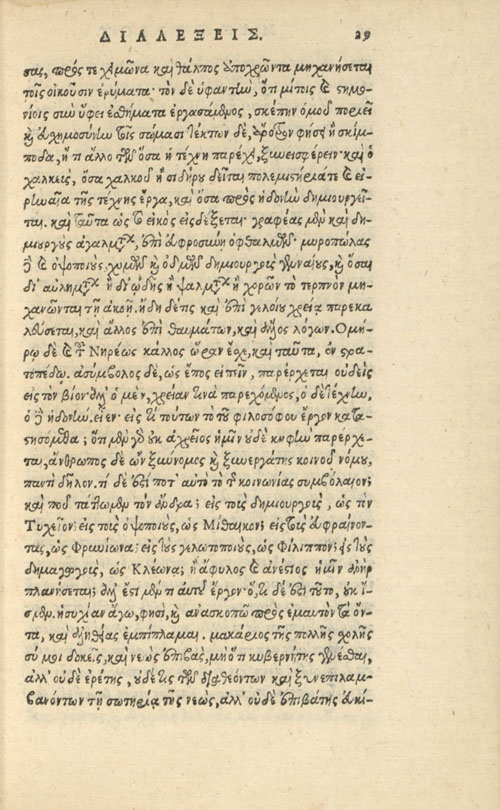 ΔΙΑΛΕΞΕΙΣ. 29
σας, πρός τε χειμῶνα καὶ θάλπος ἀποχρῶντα μηχανήσεται
τοῖς οἰκοῦσιν ἐρύματα· τὸν δὲ ὑφαντὴν, ὅτι μίτοις καὶ στημο-
νίοις σὺν ὕφει ἐσθήματα ἐργασάμενος, σκέπην ὁμοῦ ποριεῖ
καὶ εὐσχημοσύνην τοῖς σώμασι τέκτων δὲ, ὄροφον φησὶ ἢ σκίμ-
ποδα, ἤ τι ἄλλο τῶν ὅσα ἡ τέχνη παρέχει, ξυνεισφέρειν· καὶ ὁ
χαλκεὺς, ὅσα χαλκοῦ ἢ σιδήρου δεῖται πολεμιστήματε καὶ εἰ-
ρηναῖα τῆς τέχνης ἔργα, καὶ ὅσα πρὸς ἡδονὴν δημιουργεῖ-
ται. καὶ ταῦτα ὡς τὸ εἰκὸς εἰσδέξεται· γραφέας μὲν καὶ δη-
μιουργοὺς ἀγαλμάτων, ἐπὶ εὐφροσύνῃ ὀφθαλμῶν· μυροπώλας
δὲ καὶ ὀψοποιοὺς χυμῶν καὶ ὀδμῶν δημιουργοὺς γενναίους, καὶ ὅσαι
δι' αὐλημάτων ἢ δι' ᾠδῆς ἢ ψαλμάτων ἢ χορῶν τὸ τερπνὸν μη-
χανῶνται τῇ ἀκοῇ. ἤδη δέ τις καὶ ἐπὶ γελοίου χρείᾳ παρεκα
λεύσεται, καὶ ἄλλος ἐπὶ θαυμάτων, καὶ ἄλλος λόγων. Ὁμή-
ρῳ δὲ καὶ τὸ Νηρέως κάλλος ὥραν ἔσχε, καὶ ταῦτα, ἐν στρα-
τοπέδῳ. ἀσύμβολος δὲ, ὡς ἔπος εἰπεῖν, παρέρχεται οὐδεὶς
εἰς τὸν βίον· ἀλλ' ὁ μὲν, χρείαν τινὰ παρεχόμενος, ὁ δὲ τέχνην,
ὁ δὲ ἡδονήν. εἶεν· εἰς τί τούτων τὸ τοῦ φιλοσόφου ἔργον κατα-
στησόμεθα; ὅτι μὲν γὰρ οὐκ ἀχρεῖος ἡμῖν οὐδὲ κηφὴν παρέρχε-
ται, ἄνθρωπος δὲ ὢν ξύννομος καὶ ξυνεργάτης κοινοῦ νόμου,
παντὶ δῆλον. τί δὲ ἐστί ποτ' αὐτὸ τὸ τῆς κοινωνίας συμβόλαιον;
καὶ ποῦ τάττωμεν τὸν ἄνδρα; εἰς τοὺς δημιουργοὺς, ὡς τὸν
Τυχεῖον; εἰς τοὺς ὀψοποιοὺς, ὡς Μίθαικον; εἰς τοὺς εὐφραίνον-
τας, ὡς Φρυνίωνα; εἰς τοὺς γελωτοποιοὺς, ὡς Φίλιππον; εἰς τοὺς
δημαγωγοὺς, ὡς Κλέωνα; ἢ ἄφυλος καὶ ἀνέστιος ἡμῖν ἀνὴρ
πλανήσεται; ἀλλ' ἔστι μέν τι αὐτῷ ἔργον· ὅ,τι δέ ἐστι τοῦτο, οὐκ ἴ-
σμεν. ἡσυχίαν ἄγω, φησὶ, καὶ ἀνασκοπῶ πρὸς ἐμαυτὸν τὰ ὄν-
τα, καὶ ἀληθείας ἐμπίπλαμαι. μακάριος τῆς πολλῆς σχολῆς
σύ μοι δοκεῖς, καὶ νεὼς ἐπιβὰς, μὴ ὅτι κυβερνήτης γενέσθαι,
ἀλλ' οὐδὲ ἐρέτης, οὐδέ τις τῶν διαθεόντων καὶ ξυνεπιλαμ-
βανόντων τῇ σωτηρίᾳ τῆς νεὼς, ἀλλ' οὐδὲ ἐπιβάτης εὐκί-